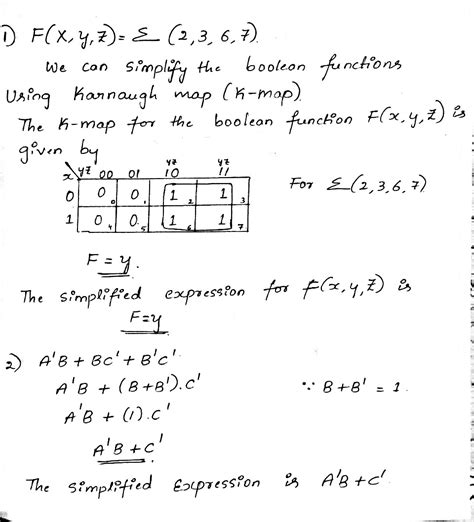 1) F(x,y,z) = Σ (2,3,6,7).
We can simplify the boolean functions
Using Karnaugh map (K-map)
The K-map for the boolean function F(x,y,z) is
given by
x \ yz 00 01 yz 10 yz 11
0 0 0 0 1 1 2 1 3
1 0 4 0 5 1 6 1 7
For Σ(2,3,6,7)
F = y.
The simplified expression for F(x,y,z) is
F=y
2) A'B + BC' + B'C'
A'B + (B+B').C' ∵ B+B' = 1.
A'B + (1).C'
A'B + C'
The simplified Expression is A'B+C'